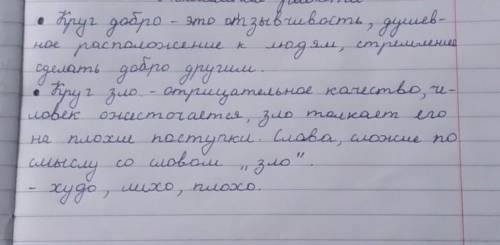 • Круг добро - это отзывчивость, душев-
ное расположение к людям, стремление
сделать добро другим.
• Круг зло - отрицательное качество, че-
ловек ожесточается, зло толкает его
на плохие поступки. Слова, сложие по
смыслу со словом „зло".
- худо, лихо, плохо.